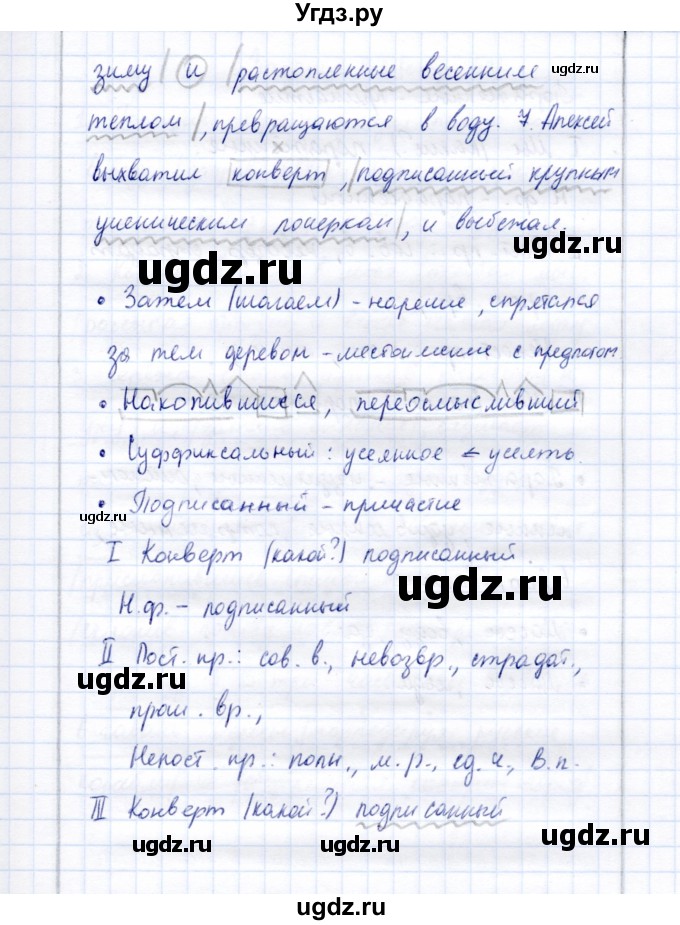 Угдз.ру
зиму и растопленные весенним
теплом, превращаются в воду. 7. Алексей
выхватил конверт, подписанный крупным
ученическим почерком, и выбежал.
• Затем (шагаем) - наречие, спрятался
за тем деревом - местоимение с предлогом
• Накопившиеся, переосмысливший
• Суффиксальный: усеянное ← усеять.
• Подписанный - причастие
I Конверт (какой?) подписанный.
Н.ф. - подписанный
II Пост. пр.: сов. в., невозвр., страдат.,
прош. вр.,
Непост. пр.: полн., м.р., ед.ч., В.п.
III Конверт (какой?) подписанный
ugdz.ru
ugdz.ru
ugdz.ru
ugdz.ru
ugdz.ru
ugdz.ru
ugdz.ru
ugdz.ru
ugdz.ru
ugdz.ru
ugdz.ru